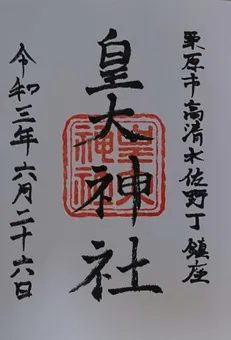 栗原市高清水佐野丁鎮座
皇大神社
皇大
神社
令和三年六月二十六日